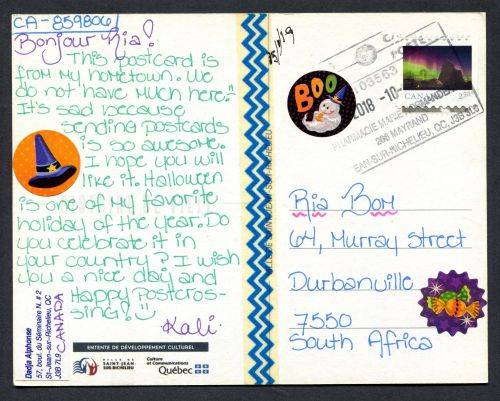 CA-859806
Bonjour Ria!
This postcard is
from my hometown. We
do not have much here."
It's sad because
sending postcards
is so awesome.
I hope you will
like it. Halloween
is one of my favorite
holiday of the year. Do
you celebrate it in
your country? I wish
you a nice day and
Happy Postcros-
sing!
Kali
Dadja Alphonse
57, boul. du Séminaire N. # 2
St-Jean-sur-Richelieu, QC
J3B 7L9
CANADA
ENTENTE DE DÉVELOPPEMENT CULTUREL
VILLE DE
SAINT-JEAN-
SUR-RICHELIEU
Culture
et Communications
Québec
BOO
03563
2018-10-
PHARMACIE MARIE
266 MAYRAND
EAN-SUR-RICHELIEU, QC, J3B 3L0
CANADA
Ria Bom
64, Murray Street
Durbanville
7550
South Africa